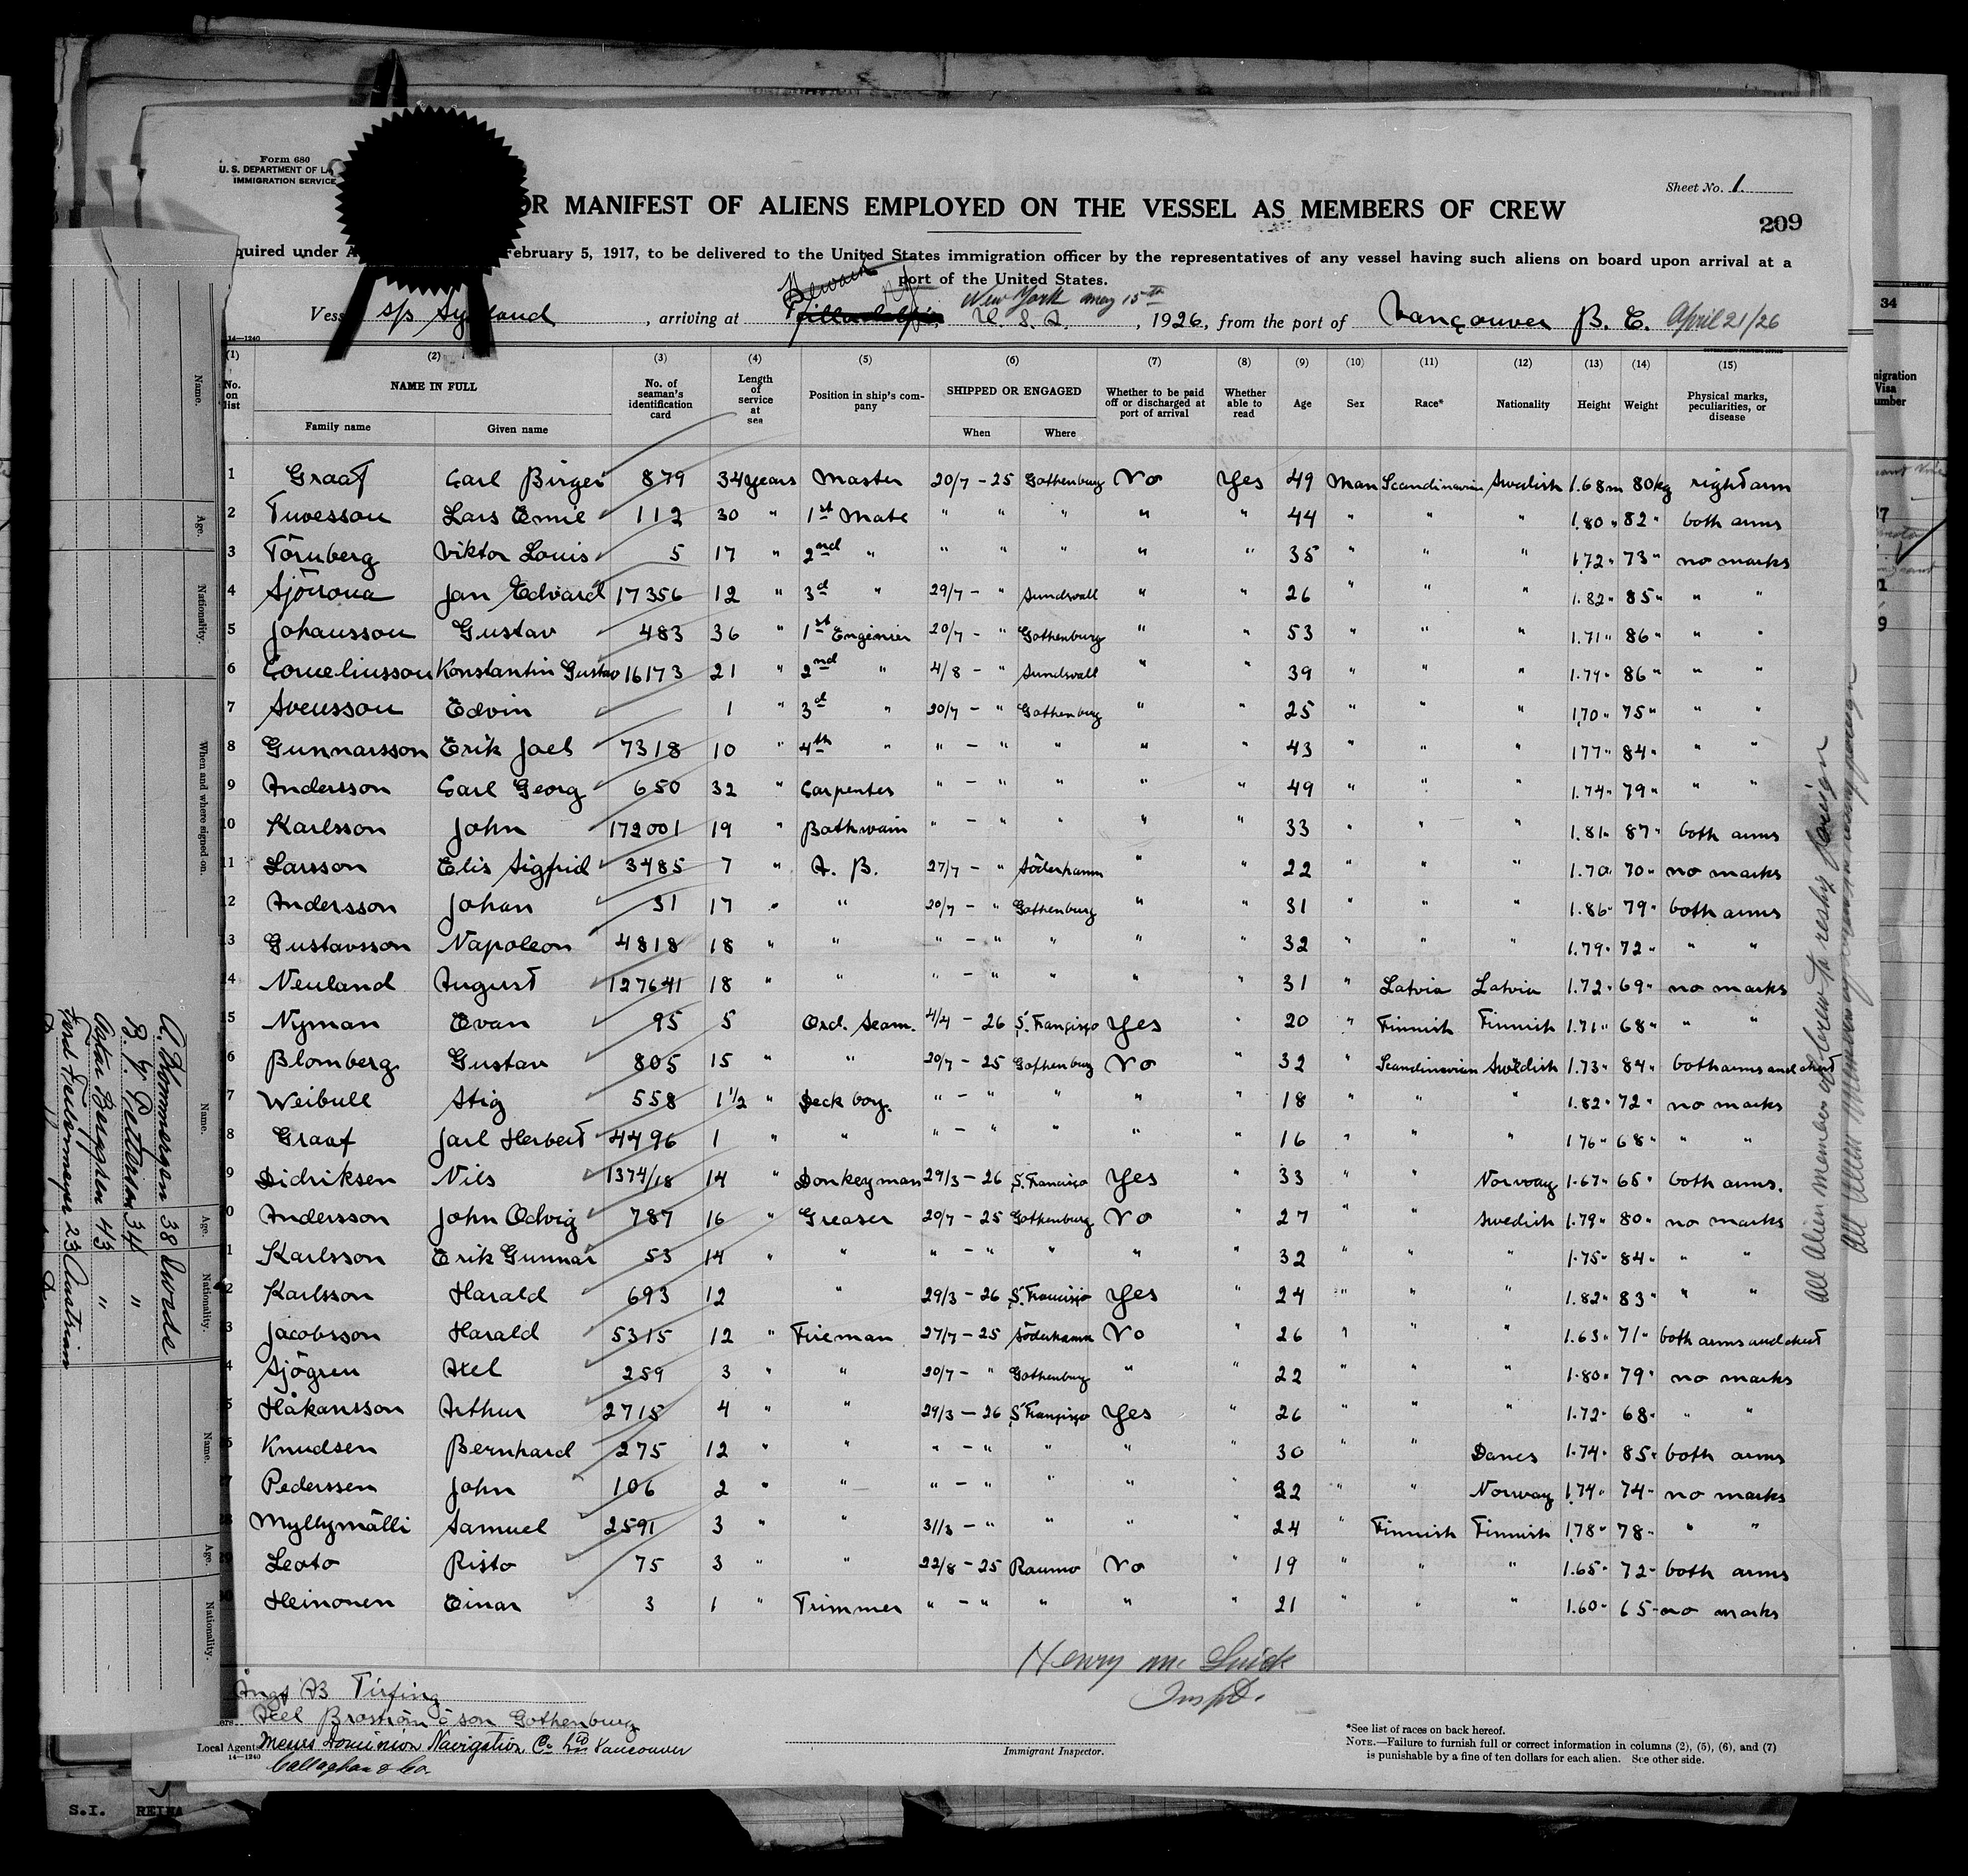 Form 680
U. S. DEPARTMENT OF LA
IMMIGRATION SERVICE
Sheet No. 1.
OR MANIFEST OF ALIENS EMPLOYED ON THE VESSEL AS MEMBERS OF CREW
209
quired under A ebruary 5, 1917, to be delivered to the United States immigration officer by the representatives of any vessel having such aliens on board upon arrival at a
port of the United States.
Newark NJ New York May 15th
Vess S/S land, arriving at U. S. A., 1926, from the port of Vancouver B. C. April 21/26
14—1240
(1) (2) (3) (4) (5) (6) (7) (8) (9) (10) (11) (12) (13) (14) (15)
No. on list NAME IN FULL No. of seaman's identification card Length of service at sea Position in ship's company SHIPPED OR ENGAGED Whether to be paid off or discharged at port of arrival Whether able to read Age Sex Race* Nationality Height Weight Physical marks, peculiarities, or disease
Family name Given name When Where
1 Graaf Carl Birger 879 34 years Master 20/7 - 25 Gothenburg No Yes 49 Man Scandinavien Swedish 1.68 m 80 kg right arm
2 Tuvesson Lars Emil 112 30 " 1st Mate " " " " " 44 " " " 1.80 " 82 " both arms
3 Törnberg Viktor Louis 5 17 " 2nd " " " " " " 35 " " " 1.72 " 73 " no marks
4 Jan Edvard 17356 12 " 3d " 29/7 - " Sundsvall " " 26 " " " 1.82 " 85 " " "
5 Johansson Gustav 483 36 " 1st Enginier 20/7 - " Gothenburg " " 53 " " " 1.71 " 86 " " "
6 Corneliusson Konstantin Gustav 16173 21 " 2nd " 4/8 - " Sundsvall " " 39 " " " 1.74 " 86 " " "
7 Svensson Edvin 1 " 3d " 20/7 - " Gothenburg " " 25 " " " 1.70 " 75 " " "
8 Gunnarsson Erik Joel 7318 10 " 4th " " - " " " " 43 " " " 1.77 " 84 " " "
9 Andersson Carl Georg 650 32 " Carpenter " - " " " " 49 " " " 1.74 " 79 " " "
10 Karlsson John 172001 19 " Bothwain " - " " " " 33 " " " 1.81 " 87 " both arms
11 Larsson Elis Sigfrid 3485 7 " A. B. 27/7 - " Söderhamn " " 22 " " " 1.70 " 70 " no marks
12 Andersson Johan 31 17 " " 20/7 - " Gothenburg " " 31 " " " 1.86 " 79 " both arms
13 Gustavsson Napoleon 4818 18 " " " - " " " " 32 " " " 1.79 " 72 " " "
14 Neuland August 127641 18 " " " - " " " " 31 " Latvia Latvia 1.72 " 69 " no marks
15 Nyman Evan 95 5 Ord. Seam. 4/4 - 26 S. Francisco Yes " 20 " Finnish Finnish 1.71 " 68 " " "
16 Blomberg Gustav 805 15 " " 20/7 - 25 Gothenburg No " 32 Scandinavien Swedish 1.73 " 84 " both arms and chest
17 Weibull Stig 558 1 1/2 " Deck boy. " - " " " " 18 " " " 1.82 " 72 " no marks
18 Graaf Jarl Herbert 4496 1 " " " - " " " " 16 " " " 1.76 " 68 " " "
19 Didriksen Nils 1374/18 14 " Donkeyman 29/3 - 26 S. Francisco Yes " 33 " " Norway 1.67 " 65 " both arms.
20 Andersson John Odvig 787 16 " Greaser 20/7 - 25 Gothenburg No " 27 " " Swedish 1.79 " 80 " no marks
21 Karlsson Erik Gunnar 53 14 " " " - " " " " 32 " " " 1.75 " 84 " " "
22 Karlsson Harald 693 12 " 29/3 - 26 S. Francisco Yes " 24 " " " 1.82 " 83 " " "
23 Jacobsson Harald 5315 12 " Fireman 27/7 - 25 Söderhamn No " 26 " " " 1.63 " 71 " both arms and chest
24 Sjögren Axel 259 3 " " 20/7 - " Gothenburg " " 22 " " " 1.80 " 79 " no marks
25 Håkansson Arthur 2715 4 " " 29/3 - 26 S. Francisco Yes " 26 " " " 1.72 " 68 " " "
26 Knudsen Bernhard 275 12 " " " - " " " " 30 " " Danes 1.74 " 85 " both arms
27 Pederssen John 106 2 " " " - " " " " 32 " " Norway 1.74 " 74 " no marks
28 Myllymälli Samuel 2591 3 " " 31/3 - " " " " 24 " Finnish Finnish 1.78 " 78 " " "
29 Leoto Risto 75 3 " " 22/8 - 25 Raumo No " 19 " " " 1.65 " 72 " both arms
30 Heinonen Einar 3 1 " Trimmer " - " " " " 21 " " " 1.60 " 65 - no marks
All Alien members of crew to reship foreign
Henry Mc
Inspt.
Immigrant Inspector.
Ångf AB Tirfing
Axel Broström & son Gothenburg
Local Agents Messrs Dominion Navigation Co Ltd Vancouver
14—1240
Callaghan & Co.
*See list of races on back hereof.
NOTE.—Failure to furnish full or correct information in columns (2), (5), (6), and (7)
is punishable by a fine of ten dollars for each alien. See other side.
Name. Age. Nationality. When and where signed on.
Name. Age. Nationality.
38 Swede
B. Petterson 34 "
Berggren 43 "
23 Austrian
Name. Age. Nationality.
34
migration
Visa
umber
S.I. REIN